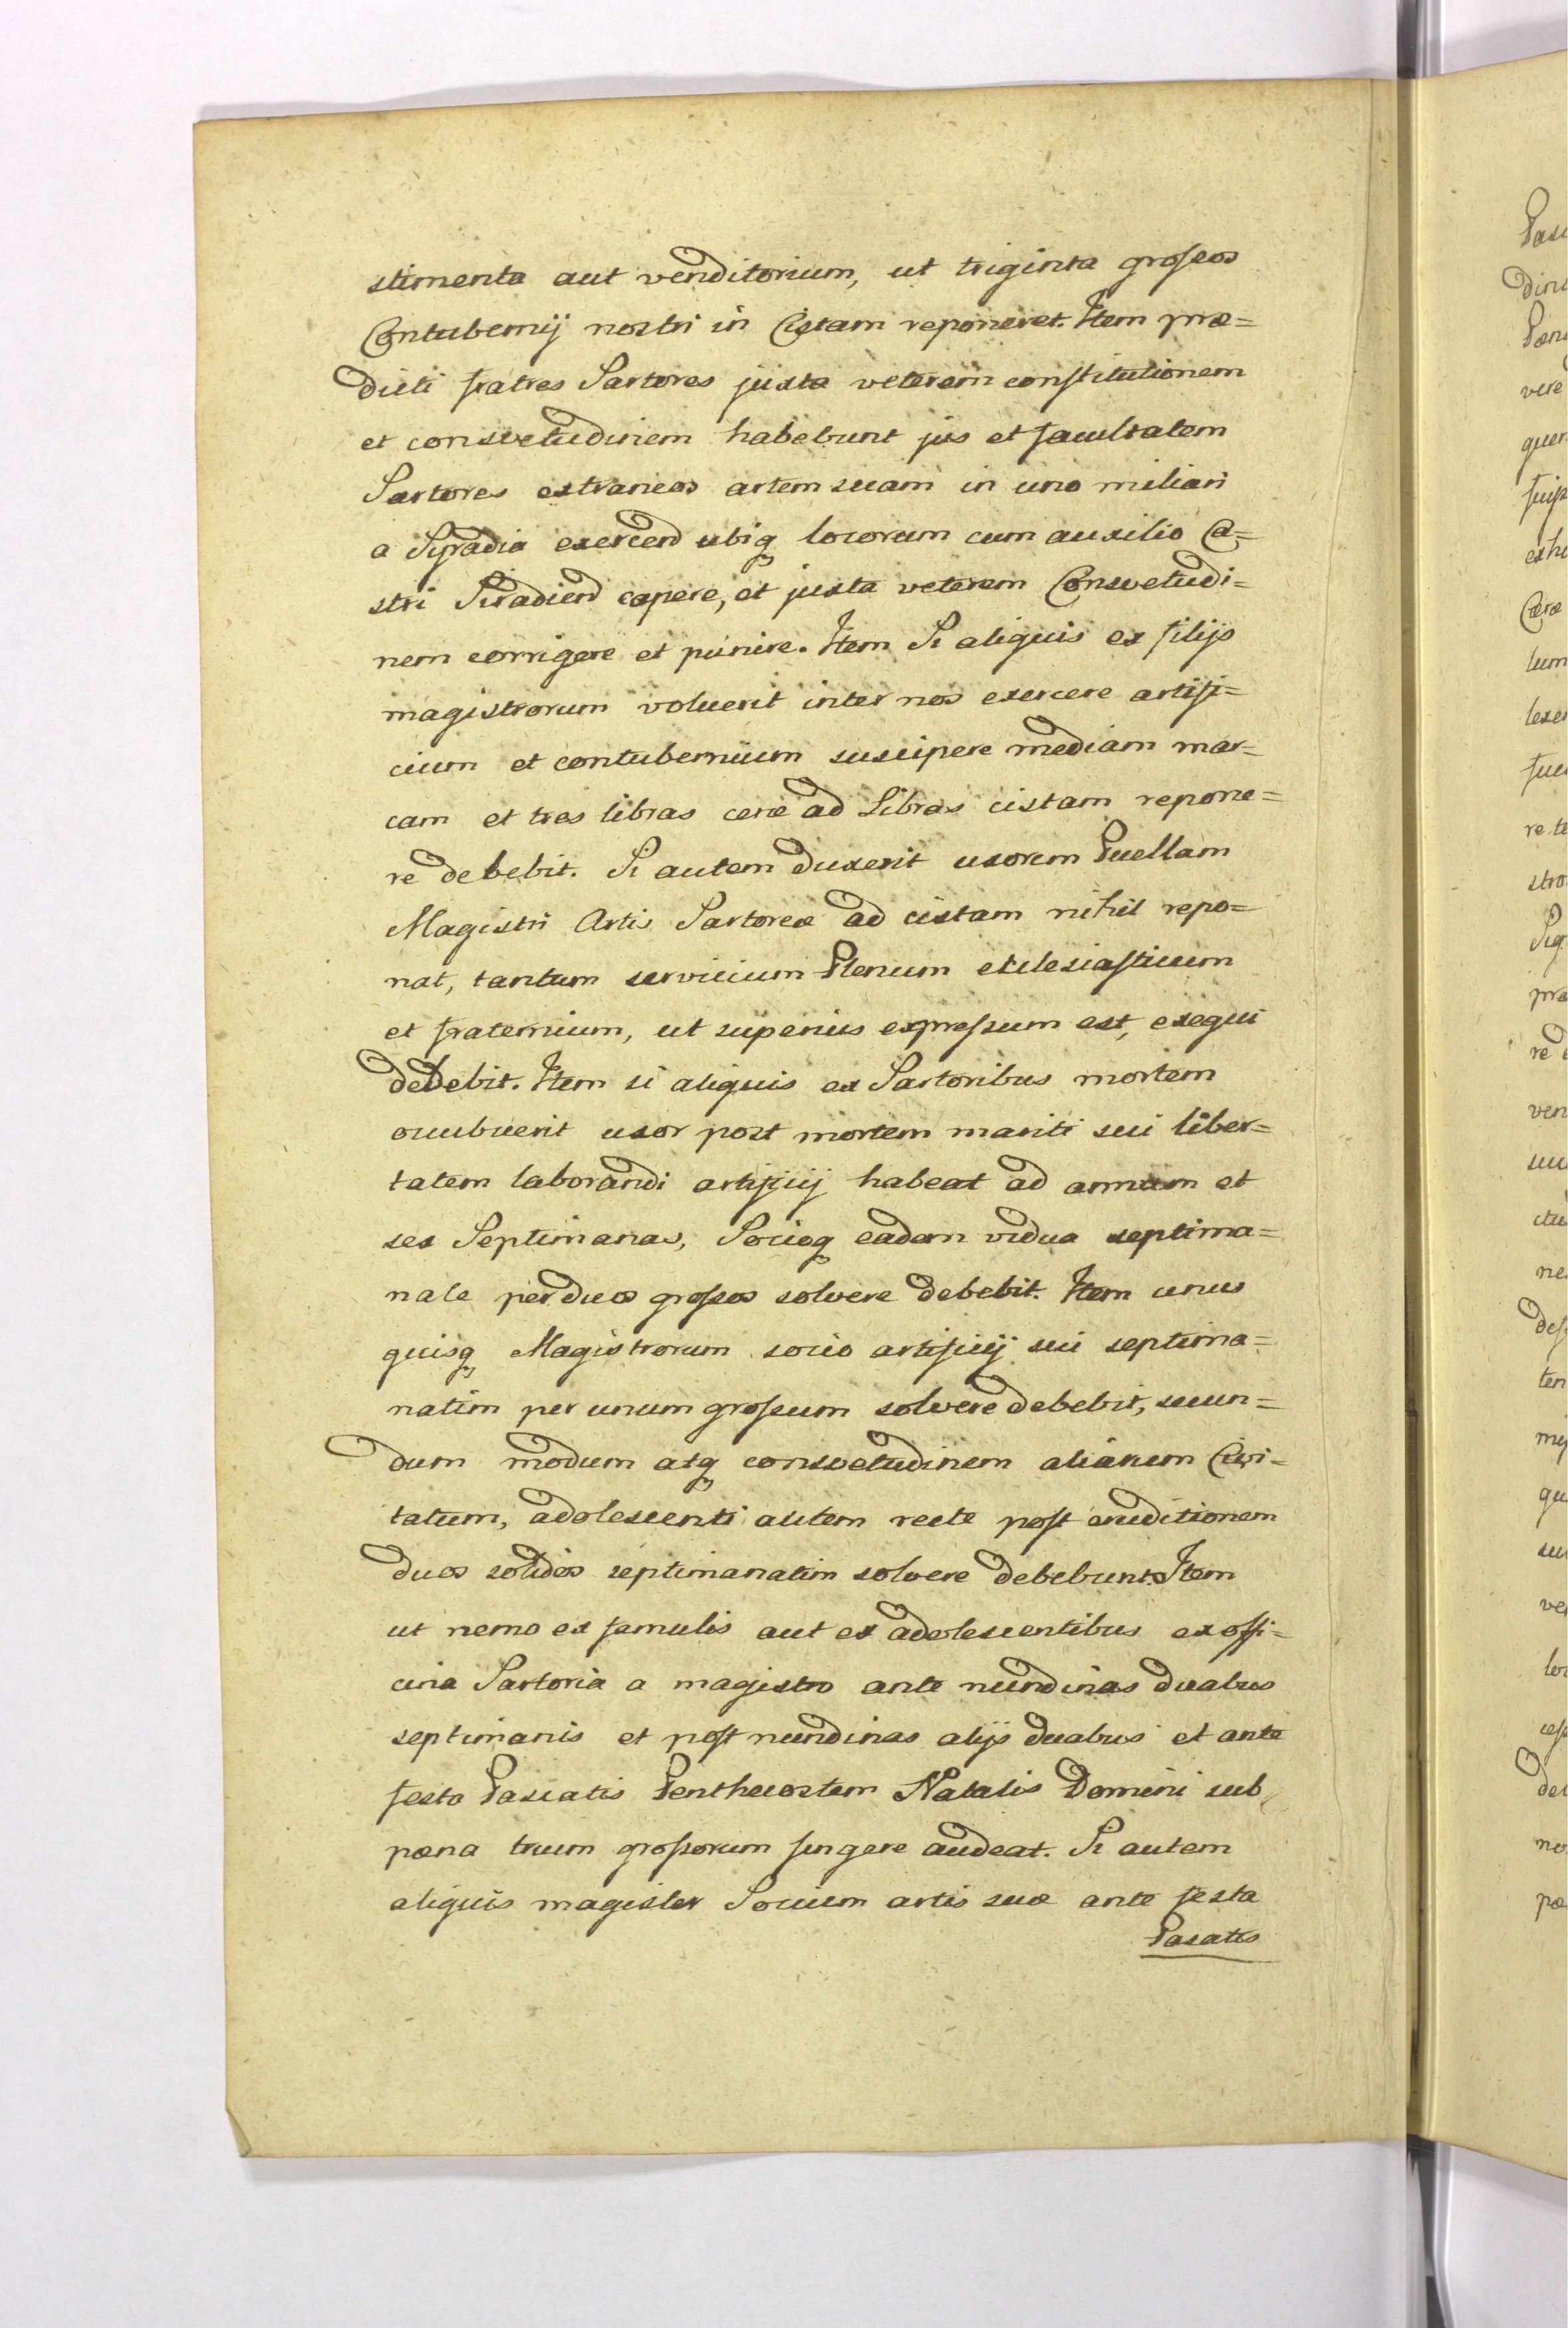 stimenta aut venditorium, ut triginta groſsos
Contubernij nostri in Cistam reponeret. Item præ=
dicti fratres Sartores juxta veterem conſtitutionem
et consvetudinem habebunt jus et facultatem
Sartores extraneos artem suam in uno miliari
a Syradia exercend ubiq locorum cum auxilio Ca=
stri Siradiend capere, et juxta veterem Consvetudi=
nem corrigere et punire. Item Si aliquis ex filijs
magistrorum voluerit inter nos exercere artifi=
cium et contubernium suscipere mediam mar=
cam et tres libras ceræ ad Libras cistam repone=
re debebit. Si autem duxerit uxorem Puellam
Magistri Artis Sartoreæ ad cistam nihil repo=
nat, tantum servicium Plenum ecclesiaſticum
et fraternium, ut superius expreſsum est, exequi
debebit. Item si aliquis ex Sartoribus mortem
occubuerit uxor post mortem mariti sui liber=
tatem laborandi artificij habeat ad annum et
sex Septimanas, Socioq eadem vidua septima=
nale per duos groſsos solvere debebit. Item unus
quisq Magistrorum socio artificij sui septima=
natim per unum groſsum solvere debebit, secun=
dum modum atq consvetudinem aliarum Civi=
tatum, adolescenti autem recte poſt eruditionem
duos solidos septimanatim solvere debebunt. Item
ut nemo ex famulis aut ex adolescentibus ex offi=
cina Sartoria a magistro ante nundinas duabus
septimanis et poſt nundinas alijs duabus et ante
festa Pascatis Penthecostem Natalis Domini sub
pœna trium groſsorum fungere audeat. Si autem
aliquis magister Socium artis suæ ante festa
Pascatis